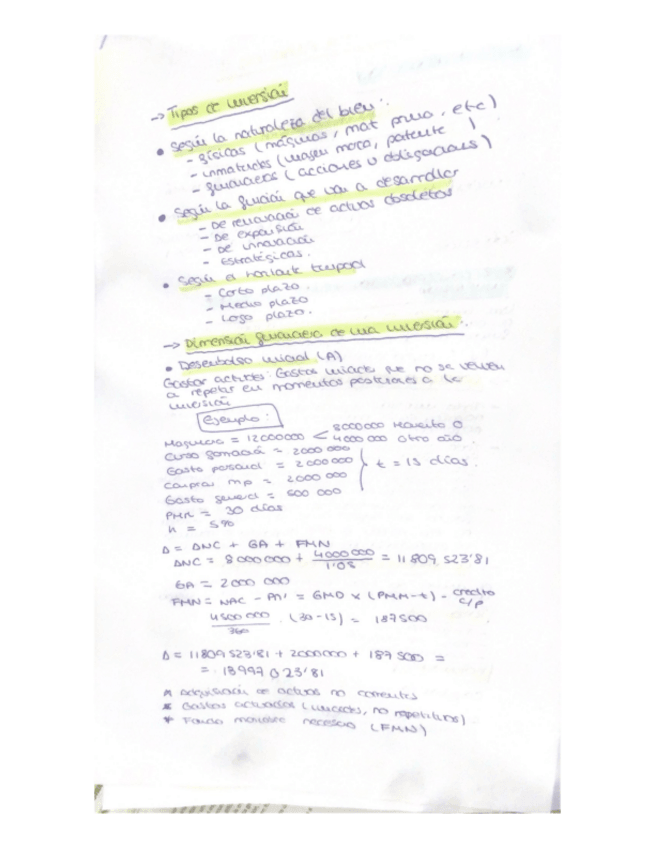 -> Tipos de inversión
• Según la naturaleza del bien:
- físicas (máquinas, mat prima, etc)
- inmateriales (imagen marca, patente)
- financieras (acciones u obligaciones)
• Según la función que van a desarrollar
- De renovación de activos obsoletos
- De expansión
- De innovación
- Estratégicas.
• Según el horizonte temporal
- Corto plazo.
- Medio plazo
- Largo plazo.
-> Dimensión financiera de una inversión:
• Desembolso inicial (A)
Gastos activados: Gastos iniciales que no se vuelven
a repetir en momentos posteriores a la
inversión
Ejemplo:
Maquinaria = 12000000 < 8000000 Momento 0
4000 000 otro año.
Curso formación = 2000 000
Gasto personal = 2000000 } t = 15 días.
Compras mp = 2000 000
Gasto general = 500 000
PMM = 30 días
K = 5%
A = ANC + GA + FMN
ANC = 8000000 + 4000 000 / 1'05 = 11 809.523'81
GA = 2000 000
FMN = NAC - PN' = GMD x (PMM-t) - credito c/p
4500 000 / 360 . (30-15) = 187500
A = 11809 523'81 + 2000000 + 187 500 =
= 13997 023'81
* Adquisición de activos no corrientes
* Gastos activados (iniciales, no repetitivos)
* Fondo maniobra necesario (FMN)